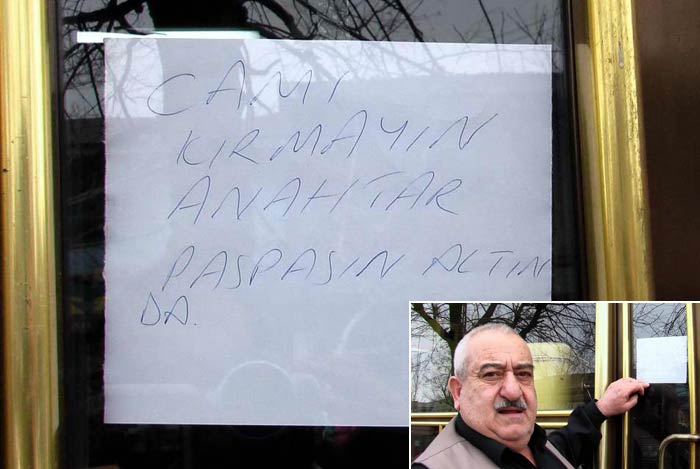 CAMI
KIRMAYIN
ANAHTAR
PASPASIN ALTIN
DA.